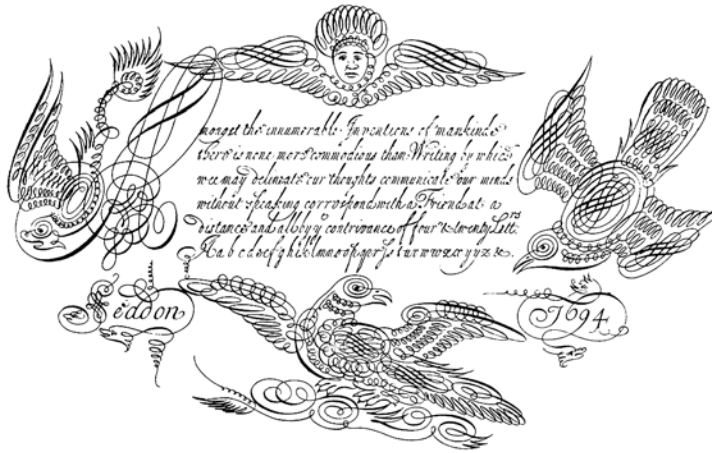 mongst the innumerable Inventions of mankinde
there is none more commodious than Writing by which
wee may delineate our thoughts communicate our minds
without speaking correspond with a Friend at a
distance and all by yͤ contrivance of four & twenty Lettʳˢ
A a b c d e f g h i k l m
Seddon
1694